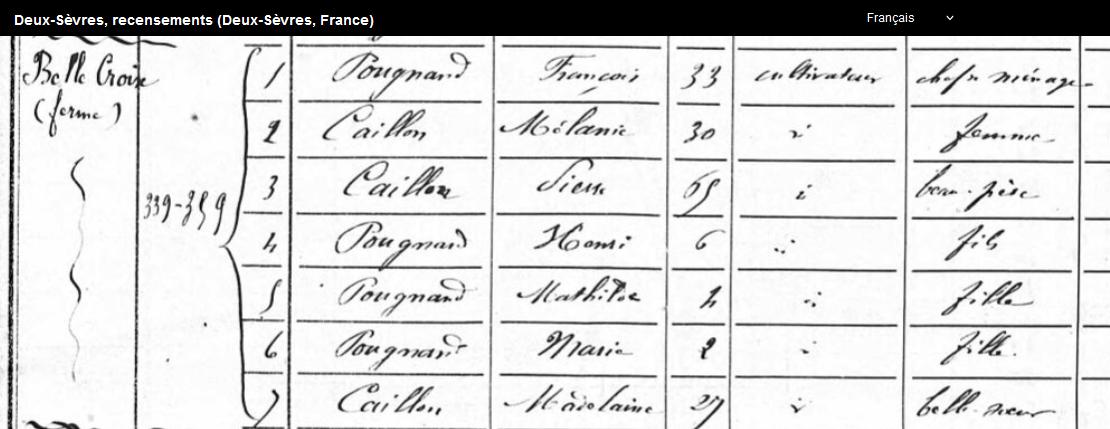 Deux-Sèvres, recensements (Deux-Sèvres, France) Français
Belle Croix (ferme)
339-359
1 Pougnard François 33 cultivateur chef de ménage
2 Caillon Mélanie 30 i femme
3 Caillon Pierre 65 i beau-père
4 Pougnard Henri 6 i fils
5 Pougnard Mathilde 4 i fille
6 Pougnard Marie 2 i fille
7 Caillon Madelaine 27 i belle-sœur